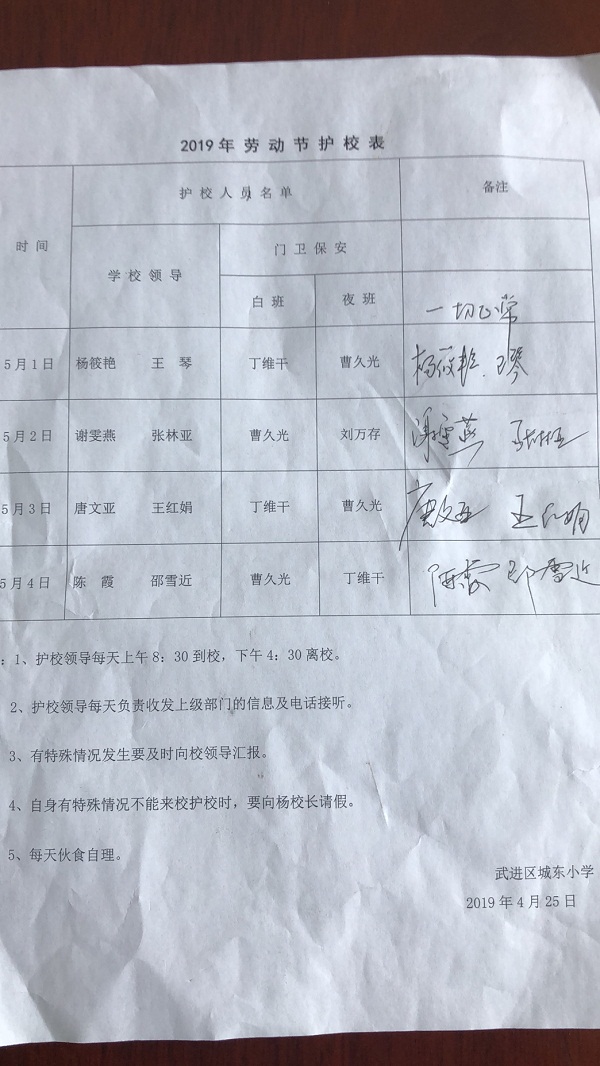 2019年劳动节护校表
护校人员名单 备注
时间
门卫保安
学校领导
白班 夜班 一切正常
5月1日 杨筱艳 王琴 丁维干 曹久光 杨筱艳 王琴
5月2日 谢雯燕 张林亚 曹久光 刘万存 谢雯燕 张林亚
5月3日 唐文亚 王红娟 丁维干 曹久光 唐文亚 王红娟
5月4日 陈霞 邵雪近 曹久光 丁维干 陈霞 邵雪近
:1、护校领导每天上午8:30到校,下午4:30离校。
2、护校领导每天负责收发上级部门的信息及电话接听。
3、有特殊情况发生要及时向校领导汇报。
4、自身有特殊情况不能来校护校时,要向杨校长请假。
5、每天伙食自理。
武进区城东小学
2019年4月25日